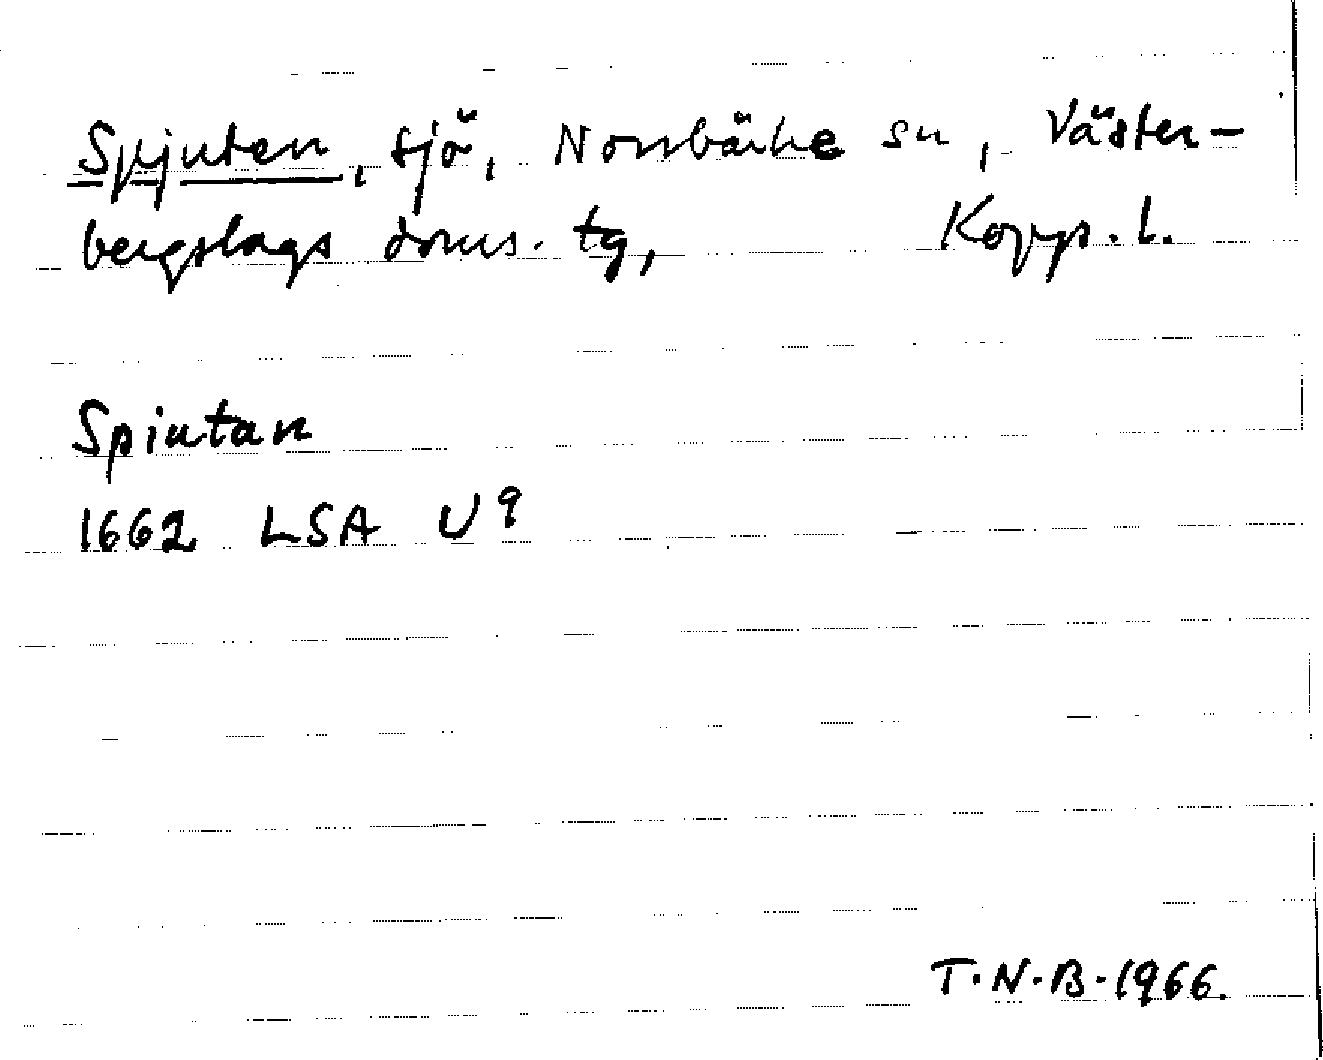 Spjuten, sjö, Norrbärke sn, Väster-
bergslags doms. tg, Kopp. l.
Spiutan
1662 LSA U9
T.N.B. 1966.